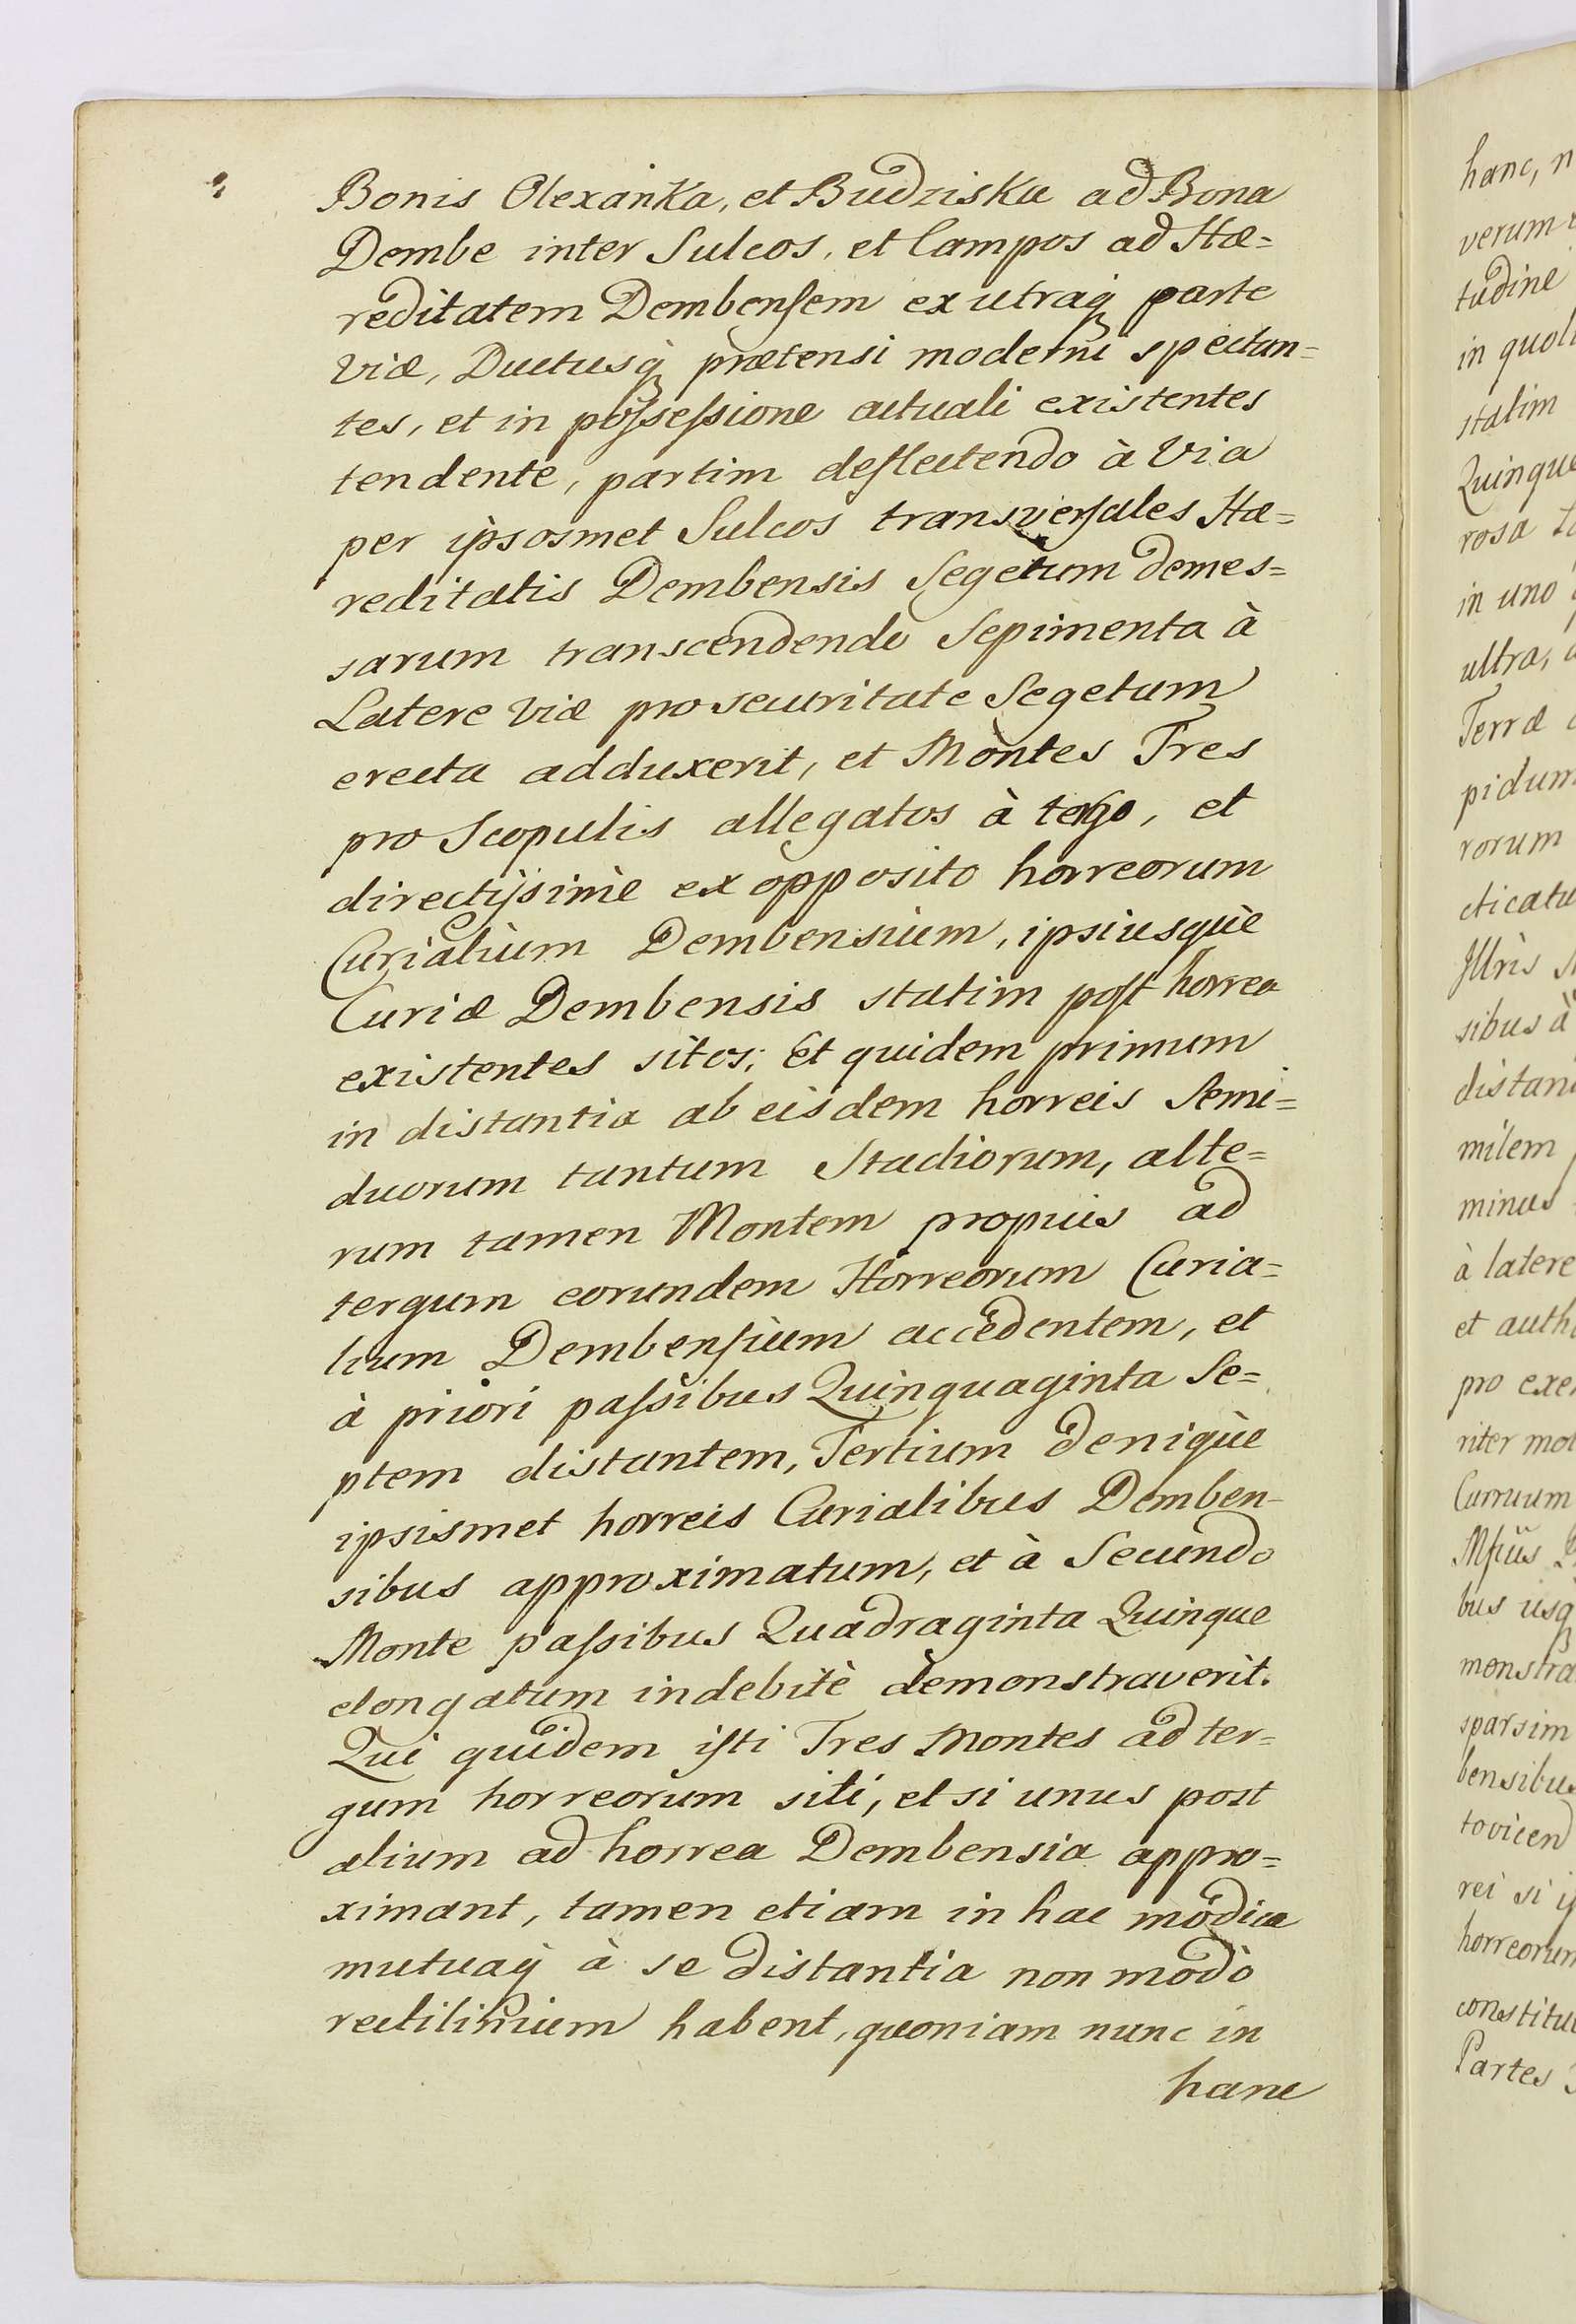 Bonis Olexanka, et Budziska ad Bona
Dembe inter Sulcos, et Campos ad Hæ=
reditatem Dembensem ex utraq parte
Viæ, Ductusq prætensi moderni spectan=
tes, et in possessione actuali existentes
tendente, partim deflectendo à Via
per ipsosmet Sulcos transversales Hæ=
reditatis Dembensis Segetum demes=
sarum transcendendo Sepimenta à
Latere Viæ pro securitate Segetum
erecta adduxerit, et Montes Tres
pro Scopulis allegatos à tergo, et
directissimè ex opposito horreorum
Curialium Dembensium, ipsiusquè
Curiæ Dembensis statim post horrea
existentes sitos; Et quidem primum
in distantia ab eisdem horreis Semi=
duorum tantum Stadiorum, alte=
rum tamen Montem propius ad
tergum eorundem Horreorum Curia=
lium Dembensium accedentem, et
à priori passibus Quinquaginta Se=
ptem distantem, Tertium deniquè
ipsismet horreis Curialibus Demben-
sibus approximatum, et à Secundo
Monte passibus Quadraginta Quinque
elongatum indebitè demonstraverit.
Qui quidem isti Tres Montes ad ter=
gum horreorum siti, et si unus post
alium ad horrea Dembensia appro=
ximant, tamen etiam in hac modica
mutuaq à se distantia non modò
rectilinium habent, quoniam nunc in
hanc
hanc, n
verum
tudine
in quol
statim
Quinque
rosa
in uno
ultra,
Terræ
pidum
rorum
cticatu
Illris
sibus à
distan
milem
minus
à latere
et auth
pro exe
riter mo
Curruum
bus usq
monstra
sparsim
bensibus
tovicen
rei si
horreorum
constitu
Partes